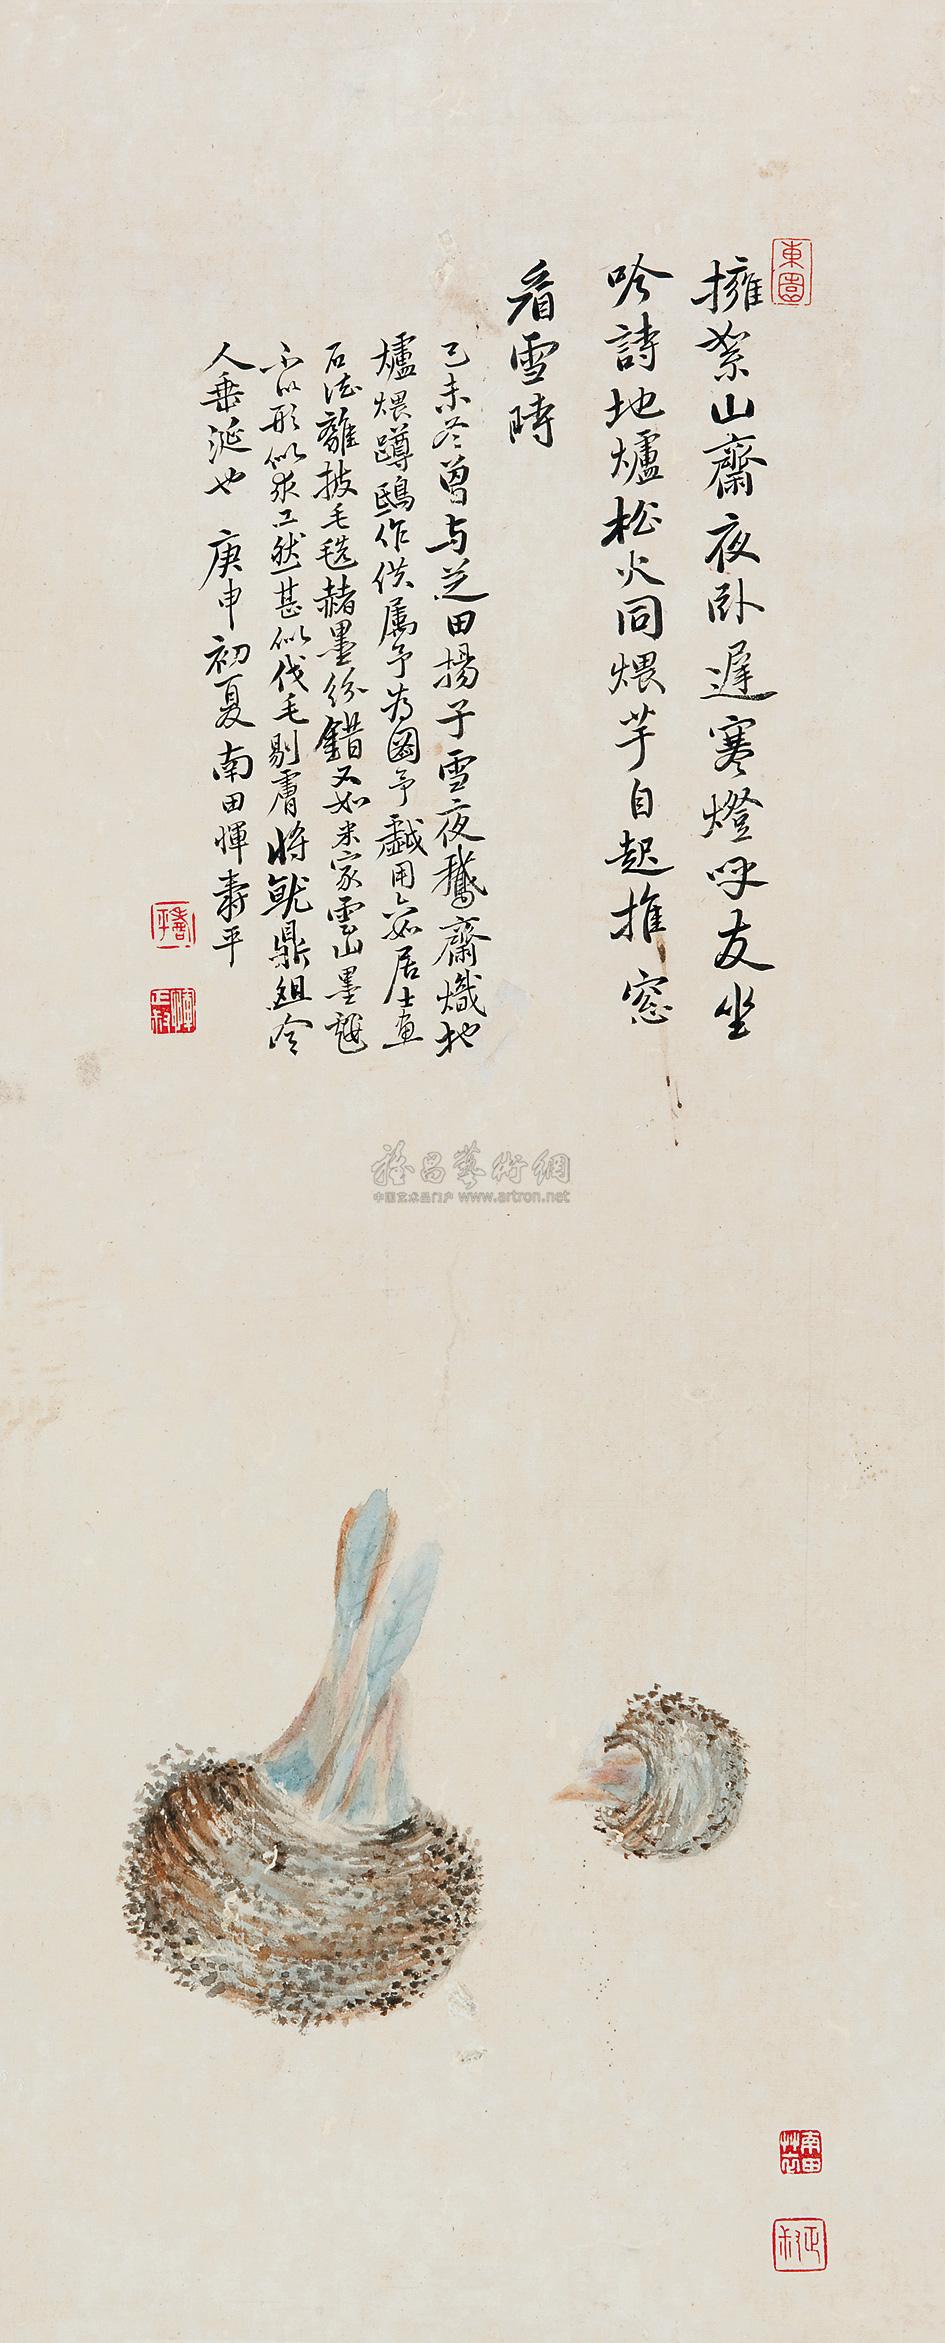 東園
擁絮山齋夜卧遲寒燈呼友坐
吟詩地爐松火同煨芋自起推窓
看雪時
己未冬曽与芝田揚子雪夜鵞齋熾地
爐煨蹲鴟作供属予为圖予戱用六如居士画
石法離披毛毨赭墨紛錯又如米家雲山墨戱
不以形似求工然甚似伐毛剔膚將魷鼎俎令
人垂涎也 庚申初夏南田惲壽平
壽平
惲正叔
雅昌藝術網
中国艺术品门户 www.artron.net
南田草衣
正叔